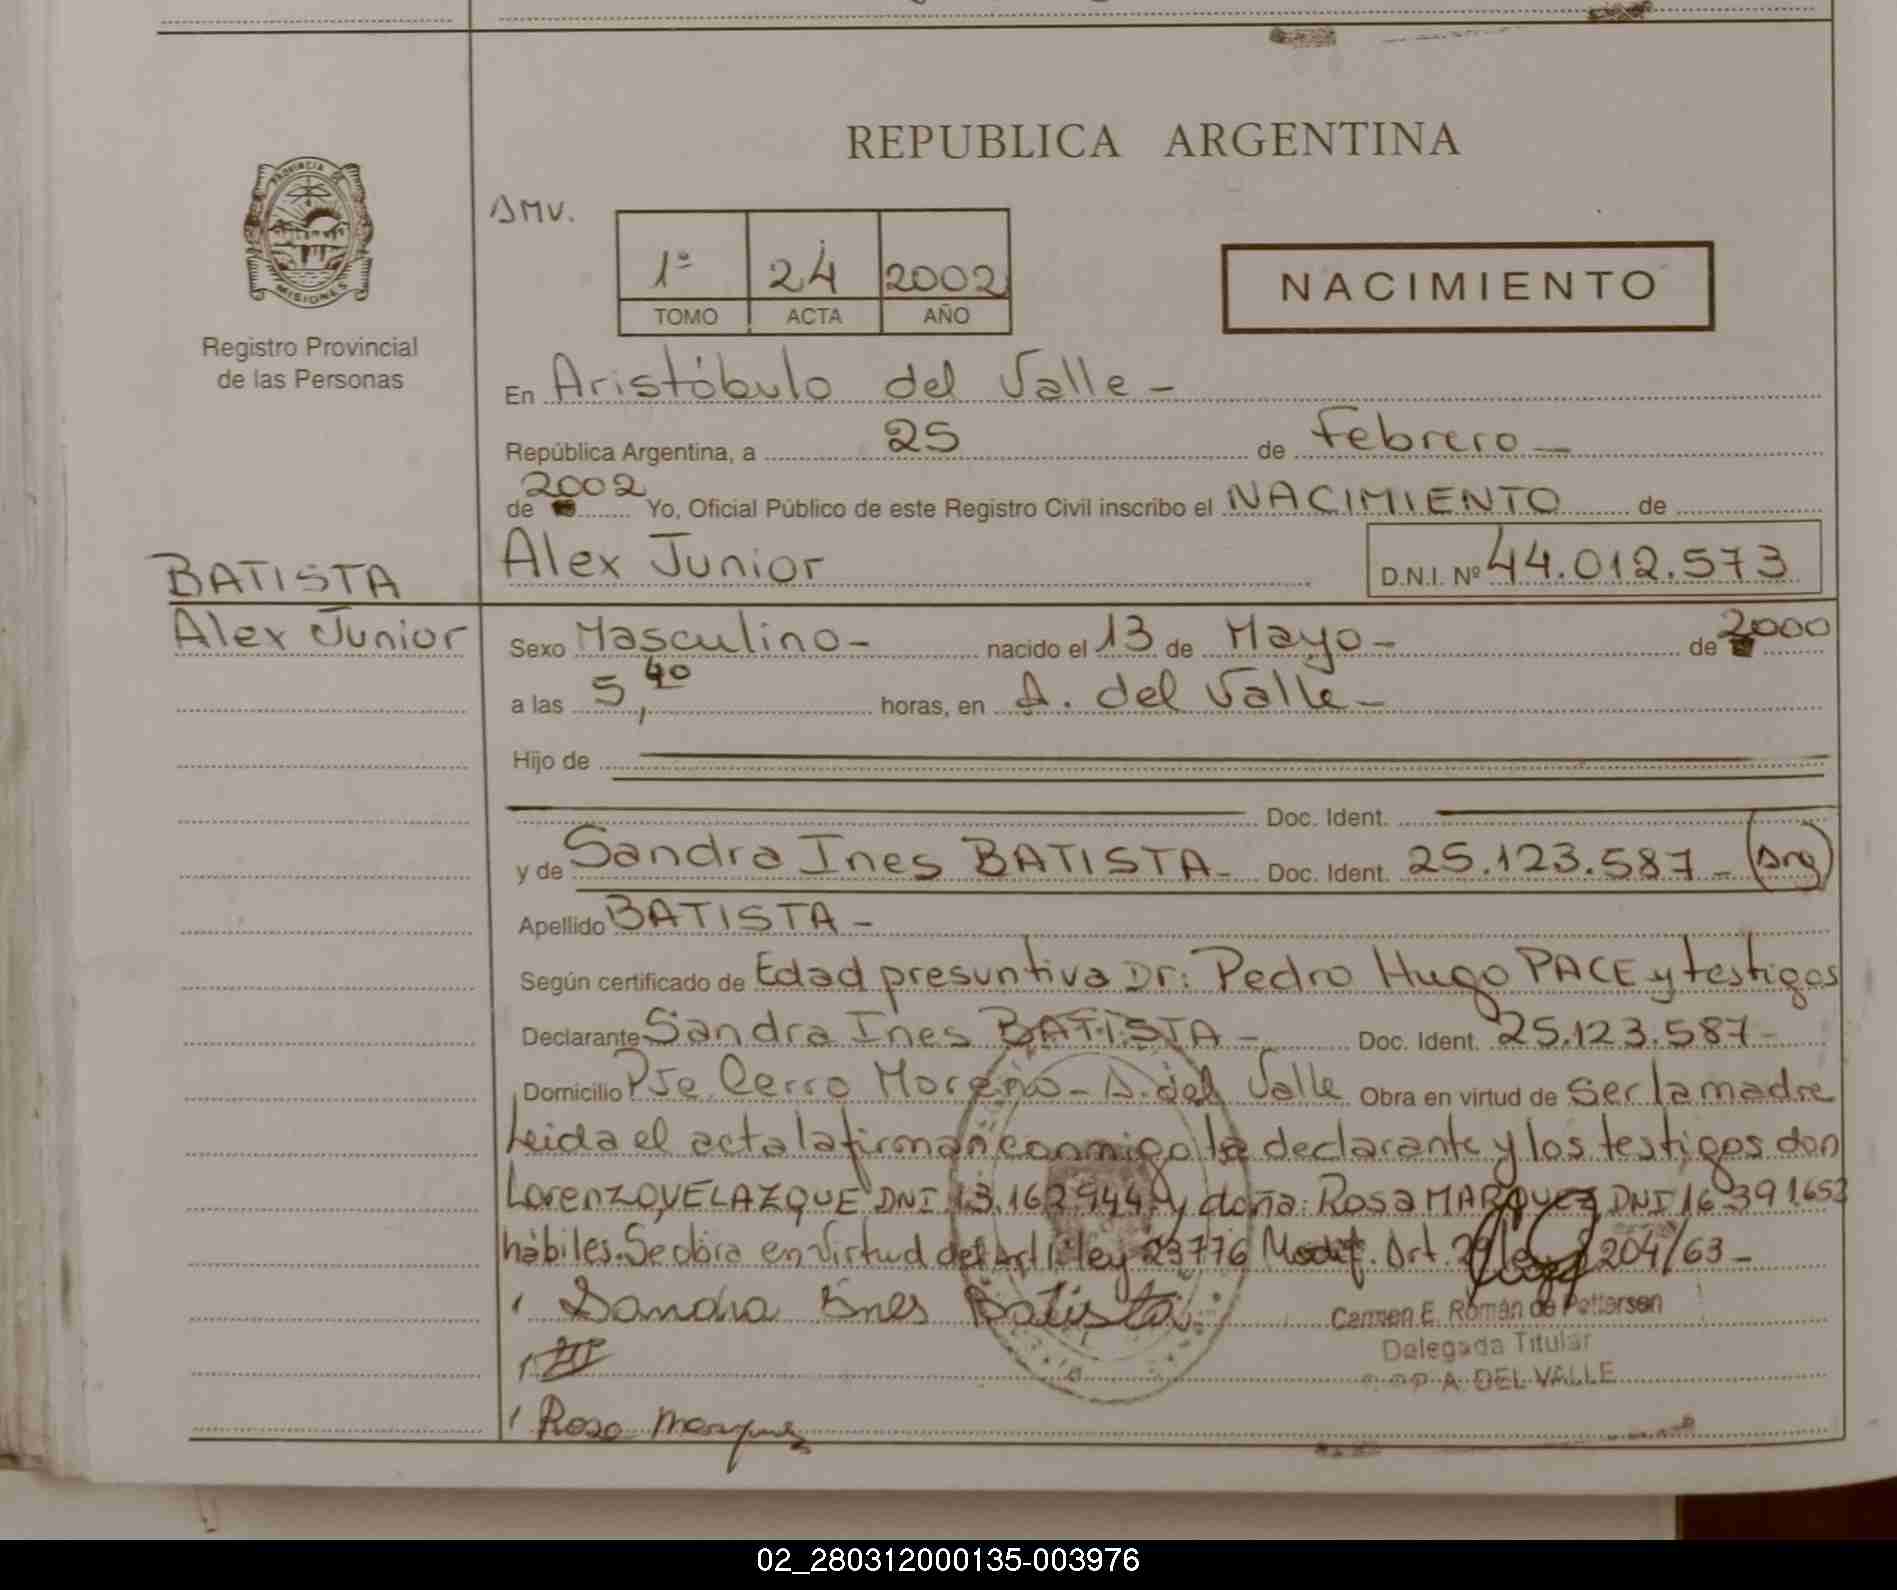 REPUBLICA ARGENTINA
PROVINCIA DE
MISIONES
Registro Provincial
de las Personas
AMV.
1º 24 2002
TOMO ACTA AÑO
NACIMIENTO
En Aristóbulo del Valle -
República Argentina, a 25 de Febrero -
de 2002 Yo, Oficial Público de este Registro Civil inscribo el NACIMIENTO de
Alex Junior D.N.I. Nº 44.012.573
BATISTA
Alex Junior
Sexo Masculino - nacido el 13 de Mayo - de 2000
a las 5,40 horas, en A. del Valle -
Hijo de
Doc. Ident.
y de Sandra Ines BATISTA - Doc. Ident. 25.123.587 - (Arg)
Apellido BATISTA -
Según certificado de Edad presuntiva Dr: Pedro Hugo PACE y testigos
Declarante Sandra Ines BATISTA - Doc. Ident. 25.123.587 -
Domicilio Pje. Cerro Moreno - A. del Valle Obra en virtud de ser la madre
Leida el acta la firman conmigo la declarante y los testigos don
Lorenzo VELAZQUE DNI 13.162.944 y doña: Rosa MARQUEZ DNI 16.391.653
hábiles. Se obra en virtud del art 1º ley 23776 Modif. Art. 29 ley 204/63 -
Sandra Ines Batista
Carmen E. Román de Pettersen
Delegada Titular
A. DEL VALLE
Rosa Marquez
02_280312000135-003976